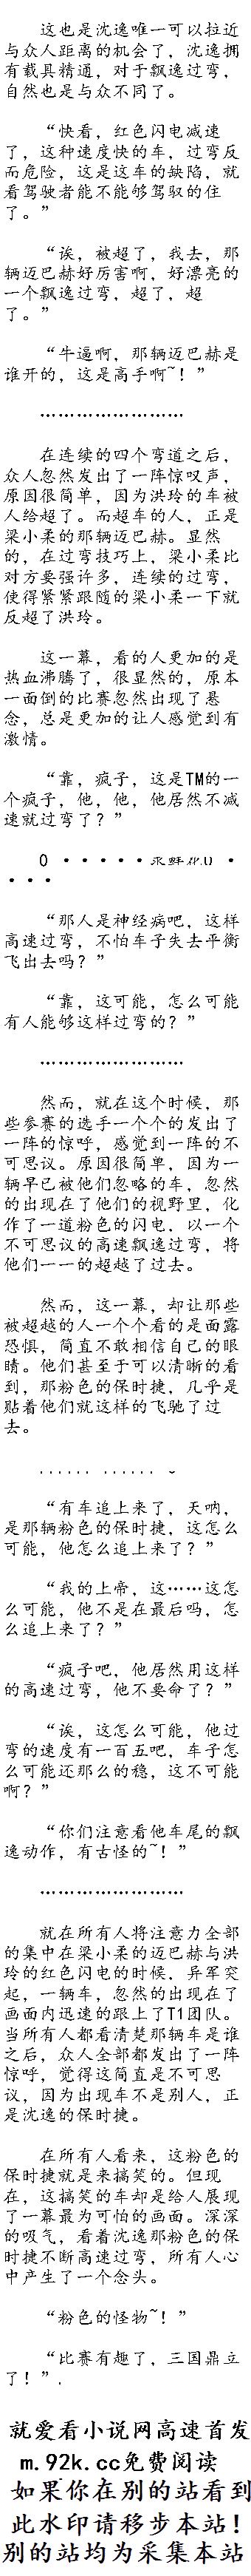 这也是沈逸唯一可以拉近
与众人距离的机会了，沈逸拥
有载具精通，对于飘逸过弯，
自然也是与众不同了。
“快看，红色闪电减速
了，这种速度快的车，过弯反
而危险，这是这车的缺陷，就
看驾驶者能不能够驾驭的住
了。”
“诶，被超了，我去，那
辆迈巴赫好厉害啊，好漂亮的
一个飘逸过弯，超了，超
了。”
“牛逼啊，那辆迈巴赫是
谁开的，这是高手啊~！”
……………………
在连续的四个弯道之后，
众人忽然发出了一阵惊叹声，
原因很简单，因为洪玲的车被
人给超了。而超车的人，正是
梁小柔的那辆迈巴赫。显然
的，在过弯技巧上，梁小柔比
对方要强许多，连续的过弯，
使得紧紧跟随的梁小柔一下就
反超了洪玲。
这一幕，看的人更加的是
热血沸腾了，很显然的，原本
一面倒的比赛忽然出现了悬
念，总是更加的让人感觉到有
激情。
“靠，疯子，这是TM的一
个疯子，他，他，他居然不减
速就过弯了？”
0·····求鲜花0·
···
“那人是神经病吧，这样
高速过弯，不怕车子失去平衡
飞出去吗？”
“靠，这可能，怎么可能
有人能够这样过弯的？”
……………………
然而，就在这个时候，那
些参赛的选手一个个的发出了
一阵的惊呼，感觉到一阵的不
可思议。原因很简单，因为一
辆早已被他们忽略的车，忽然
的出现在了他们的视野里，化
作了一道粉色的闪电，以一个
不可思议的高速飘逸过弯，将
他们一一的超越了过去。
然而，这一幕，却让那些
被超越的人一个个看的是面露
恐惧，简直不敢相信自己的眼
睛。他们甚至于可以清晰的看
到，那粉色的保时捷，几乎是
贴着他们就这样的飞驰了过
去。
“有车追上来了，天呐，
是那辆粉色的保时捷，这怎么
可能，他怎么追上来了？”
“我的上帝，这……这怎
么可能，他不是在最后吗，怎
么追上来了？”
“疯子吧，他居然用这样
的高速过弯，他不要命了？”
“诶，这怎么可能，他过
弯的速度有一百五吧，车子怎
么可能还那么的稳，这不可能
啊？”
“你们注意看他车尾的飘
逸动作，有古怪的~！”
……………………
就在所有人将注意力全部
的集中在梁小柔的迈巴赫与洪
玲的红色闪电的时候，异军突
起，一辆车，忽然的出现在了
画面内迅速的跟上了T1团队。
当所有人都看清楚那辆车是谁
之后，众人全部都发出了一阵
惊呼，觉得这简直是不可思
议，因为出现车不是别人，正
是沈逸的保时捷。
在所有人看来，这粉色的
保时捷就是来搞笑的。但现
在，这搞笑的车却是给人展现
了一幕最为可怕的画面。深深
的吸气，看着沈逸那粉色的保
时捷不断高速过弯，所有人心
中产生了一个念头。
“粉色的怪物~！”
“比赛有趣了，三国鼎立
了！”.
就爱看小说网高速首发
m.92k.cc免费阅读
如果你在别的站看到
此水印请移步本站！
别的站均为采集本站